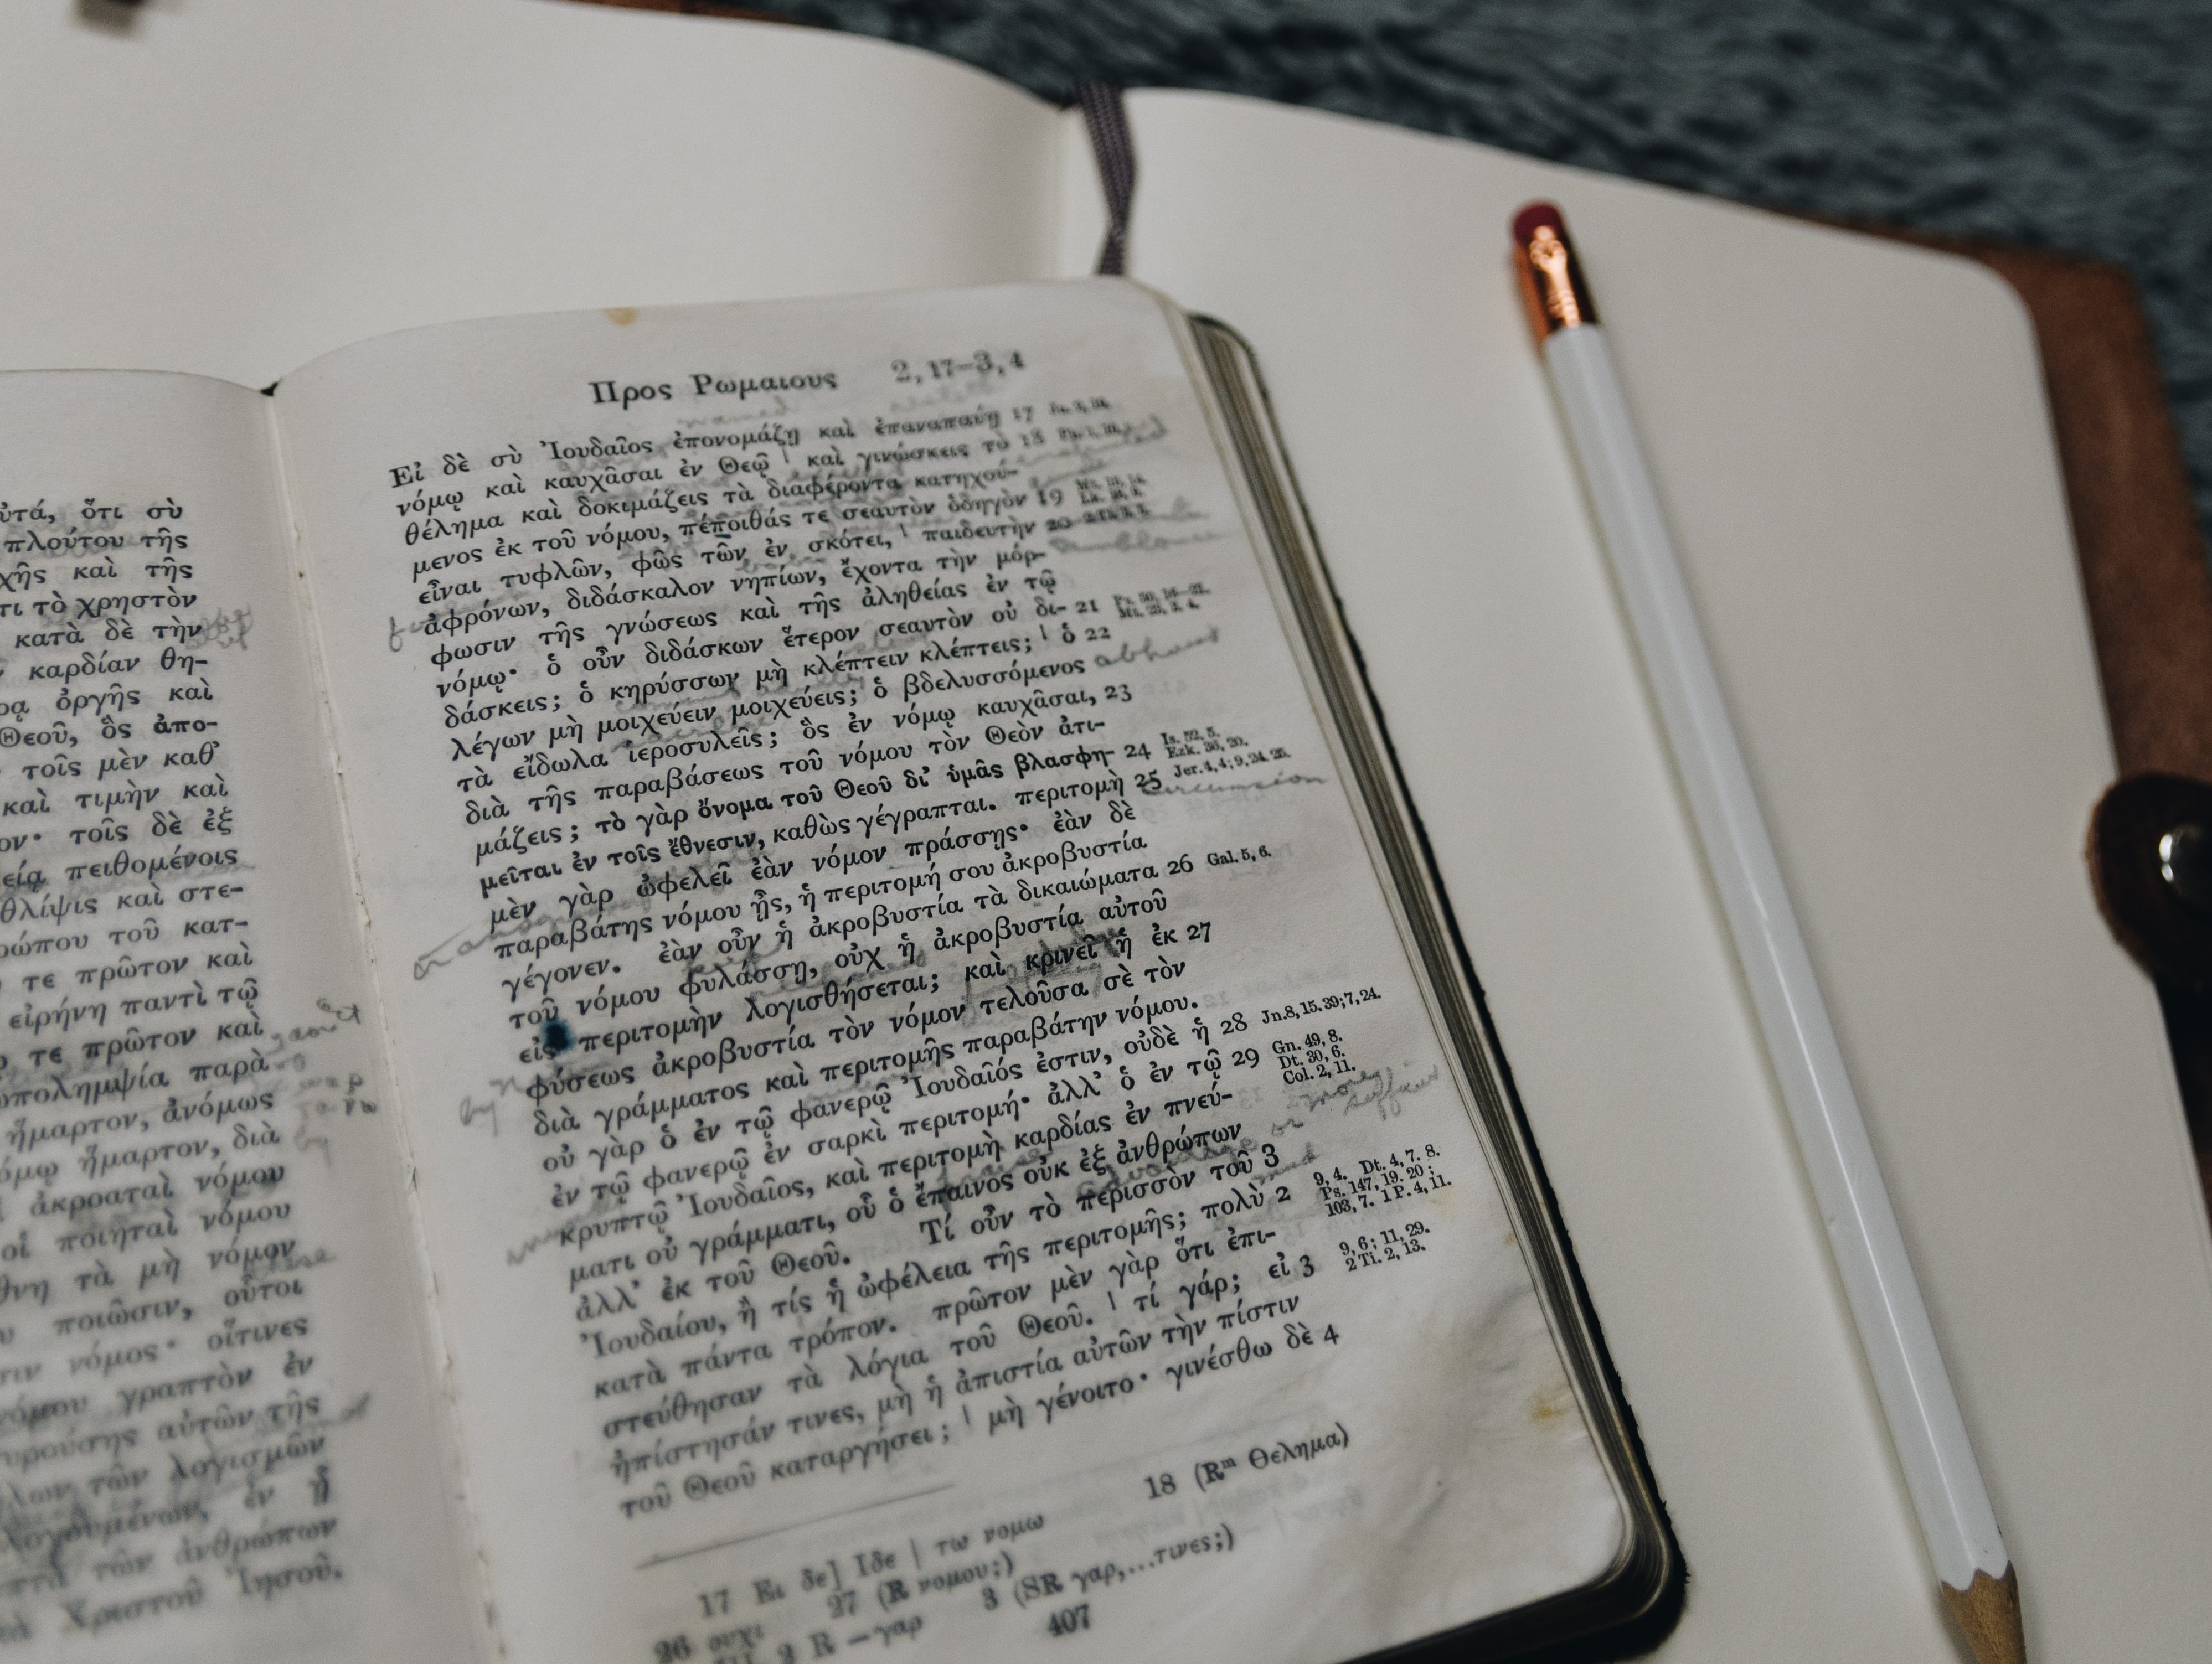 ὐτά, ὅτι σὺ
πλούτου τῆς
χῆς καὶ τῆς
τι τὸ χρηστὸν
κατὰ δὲ τὴν
καρδίαν θη-
ρᾳ ὀργῆς καὶ
Θεοῦ, ὃς ἀπο-
τοῖς μὲν καθ’
καὶ τιμὴν καὶ
ον· τοῖς δὲ ἐξ
είᾳ πειθομένοις
θλίψις καὶ στε-
ρώπου τοῦ κατ-
τε πρῶτον καὶ
εἰρήνη παντὶ τῷ
τε πρῶτον καὶ
ωπολημψία παρὰ
ἥμαρτον, ἀνόμως
όμῳ ἥμαρτον, διὰ
ἀκροαταὶ νόμου
οἱ ποιηταὶ νόμου
θνη τὰ μὴ νόμον
ποιῶσιν, οὗτοι
σιν νόμος· οἵτινες
νόμου γραπτὸν ἐν
υρούσης αὐτῶν τῆς
λων τῶν λογισμῶν
λογουμένων, ἐν ᾗ
πτὰ τῶν ἀνθρώπων
Χριστοῦ Ἰησοῦ.
Προς Ρωμαιους 2, 17–3, 4
Εἰ δὲ σὺ Ἰουδαῖος ἐπονομάζῃ καὶ ἐπαναπαύῃ 17
νόμῳ καὶ καυχᾶσαι ἐν Θεῷ | καὶ γινώσκεις τὸ 18
θέλημα καὶ δοκιμάζεις τὰ διαφέροντα κατηχού-
μενος ἐκ τοῦ νόμου, πέποιθάς τε σεαυτὸν ὁδηγὸν 19
εἶναι τυφλῶν, φῶς τῶν ἐν σκότει, | παιδευτὴν 20
ἀφρόνων, διδάσκαλον νηπίων, ἔχοντα τὴν μόρ-
φωσιν τῆς γνώσεως καὶ τῆς ἀληθείας ἐν τῷ
νόμῳ· ὁ οὖν διδάσκων ἕτερον σεαυτὸν οὐ δι- 21
δάσκεις; ὁ κηρύσσων μὴ κλέπτειν κλέπτεις; | ὁ 22
λέγων μὴ μοιχεύειν μοιχεύεις; ὁ βδελυσσόμενος abhors
τὰ εἴδωλα ἱεροσυλεῖς; ὃς ἐν νόμῳ καυχᾶσαι, 23
διὰ τῆς παραβάσεως τοῦ νόμου τὸν Θεὸν ἀτι-
μάζεις; τὸ γὰρ ὄνομα τοῦ Θεοῦ δι’ ὑμᾶς βλασφη- 24 Is. 52, 5. Ezk. 36, 20.
μεῖται ἐν τοῖς ἔθνεσιν, καθὼς γέγραπται. περιτομὴ 25 Jer. 4, 4; 9, 24. 25.
μὲν γὰρ ὠφελεῖ ἐὰν νόμον πράσσῃς· ἐὰν δὲ
παραβάτης νόμου ᾖς, ἡ περιτομή σου ἀκροβυστία
γέγονεν. ἐὰν οὖν ἡ ἀκροβυστία τὰ δικαιώματα 26 Gal. 5, 6.
τοῦ νόμου φυλάσσῃ, οὐχ ἡ ἀκροβυστία αὐτοῦ
εἰς περιτομὴν λογισθήσεται; καὶ κρινεῖ ἡ ἐκ 27
φύσεως ἀκροβυστία τὸν νόμον τελοῦσα σὲ τὸν
διὰ γράμματος καὶ περιτομῆς παραβάτην νόμου.
οὐ γὰρ ὁ ἐν τῷ φανερῷ Ἰουδαῖός ἐστιν, οὐδὲ ἡ 28 Jn. 8, 15. 39; 7, 24.
ἐν τῷ φανερῷ ἐν σαρκὶ περιτομή· ἀλλ’ ὁ ἐν τῷ 29 Gn. 49, 8. Dt. 30, 6. Col. 2, 11.
κρυπτῷ Ἰουδαῖος, καὶ περιτομὴ καρδίας ἐν πνεύ-
ματι οὐ γράμματι, οὗ ὁ ἔπαινος οὐκ ἐξ ἀνθρώπων
ἀλλ’ ἐκ τοῦ Θεοῦ. Τί οὖν τὸ περισσὸν τοῦ 3
Ἰουδαίου, ἢ τίς ἡ ὠφέλεια τῆς περιτομῆς; πολὺ 2 9, 4. Dt. 4, 7. 8. Ps. 147, 19. 20; 103, 7. 1 P. 4, 11.
κατὰ πάντα τρόπον. πρῶτον μὲν γὰρ ὅτι ἐπι-
στεύθησαν τὰ λόγια τοῦ Θεοῦ. | τί γάρ; εἰ 3 9, 6; 11, 29. 2 Ti. 2, 13.
ἠπίστησάν τινες, μὴ ἡ ἀπιστία αὐτῶν τὴν πίστιν
τοῦ Θεοῦ καταργήσει; | μὴ γένοιτο· γινέσθω δὲ 4
17 Ει δε] Ιδε | τω νομω 18 (Rᵐ Θελημα)
26 ουχι 27 (R νομου;)
2 R —γαρ 3 (SR γαρ,...τινες;)
407